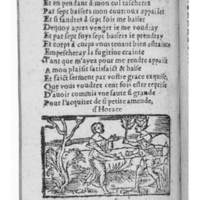 Et en penſant à mon cul taſchera
Par ſept baiſers mon courroux appaiſer
Et ſi faudra à ſept fois me baiſer
Duquoy apres venger ie me voudray
Et par ſept ſeuy ſept baiſers ie prendray
Et corps à corps vous tenant bien eſtainte
Empeſcheray la fugitiue crainte
Tant que m'ayez pour me rendre appaiſé
A mon plaiſir ſatisfaict & baiſé
Et faict ſerment par voſtre grace exquiſe,
Que vous voudrez cent fois eſtre repriſe
D'auoir commis vne faute ſi grande
Pour l'acquiter de ſi petite amende,
d'Horace